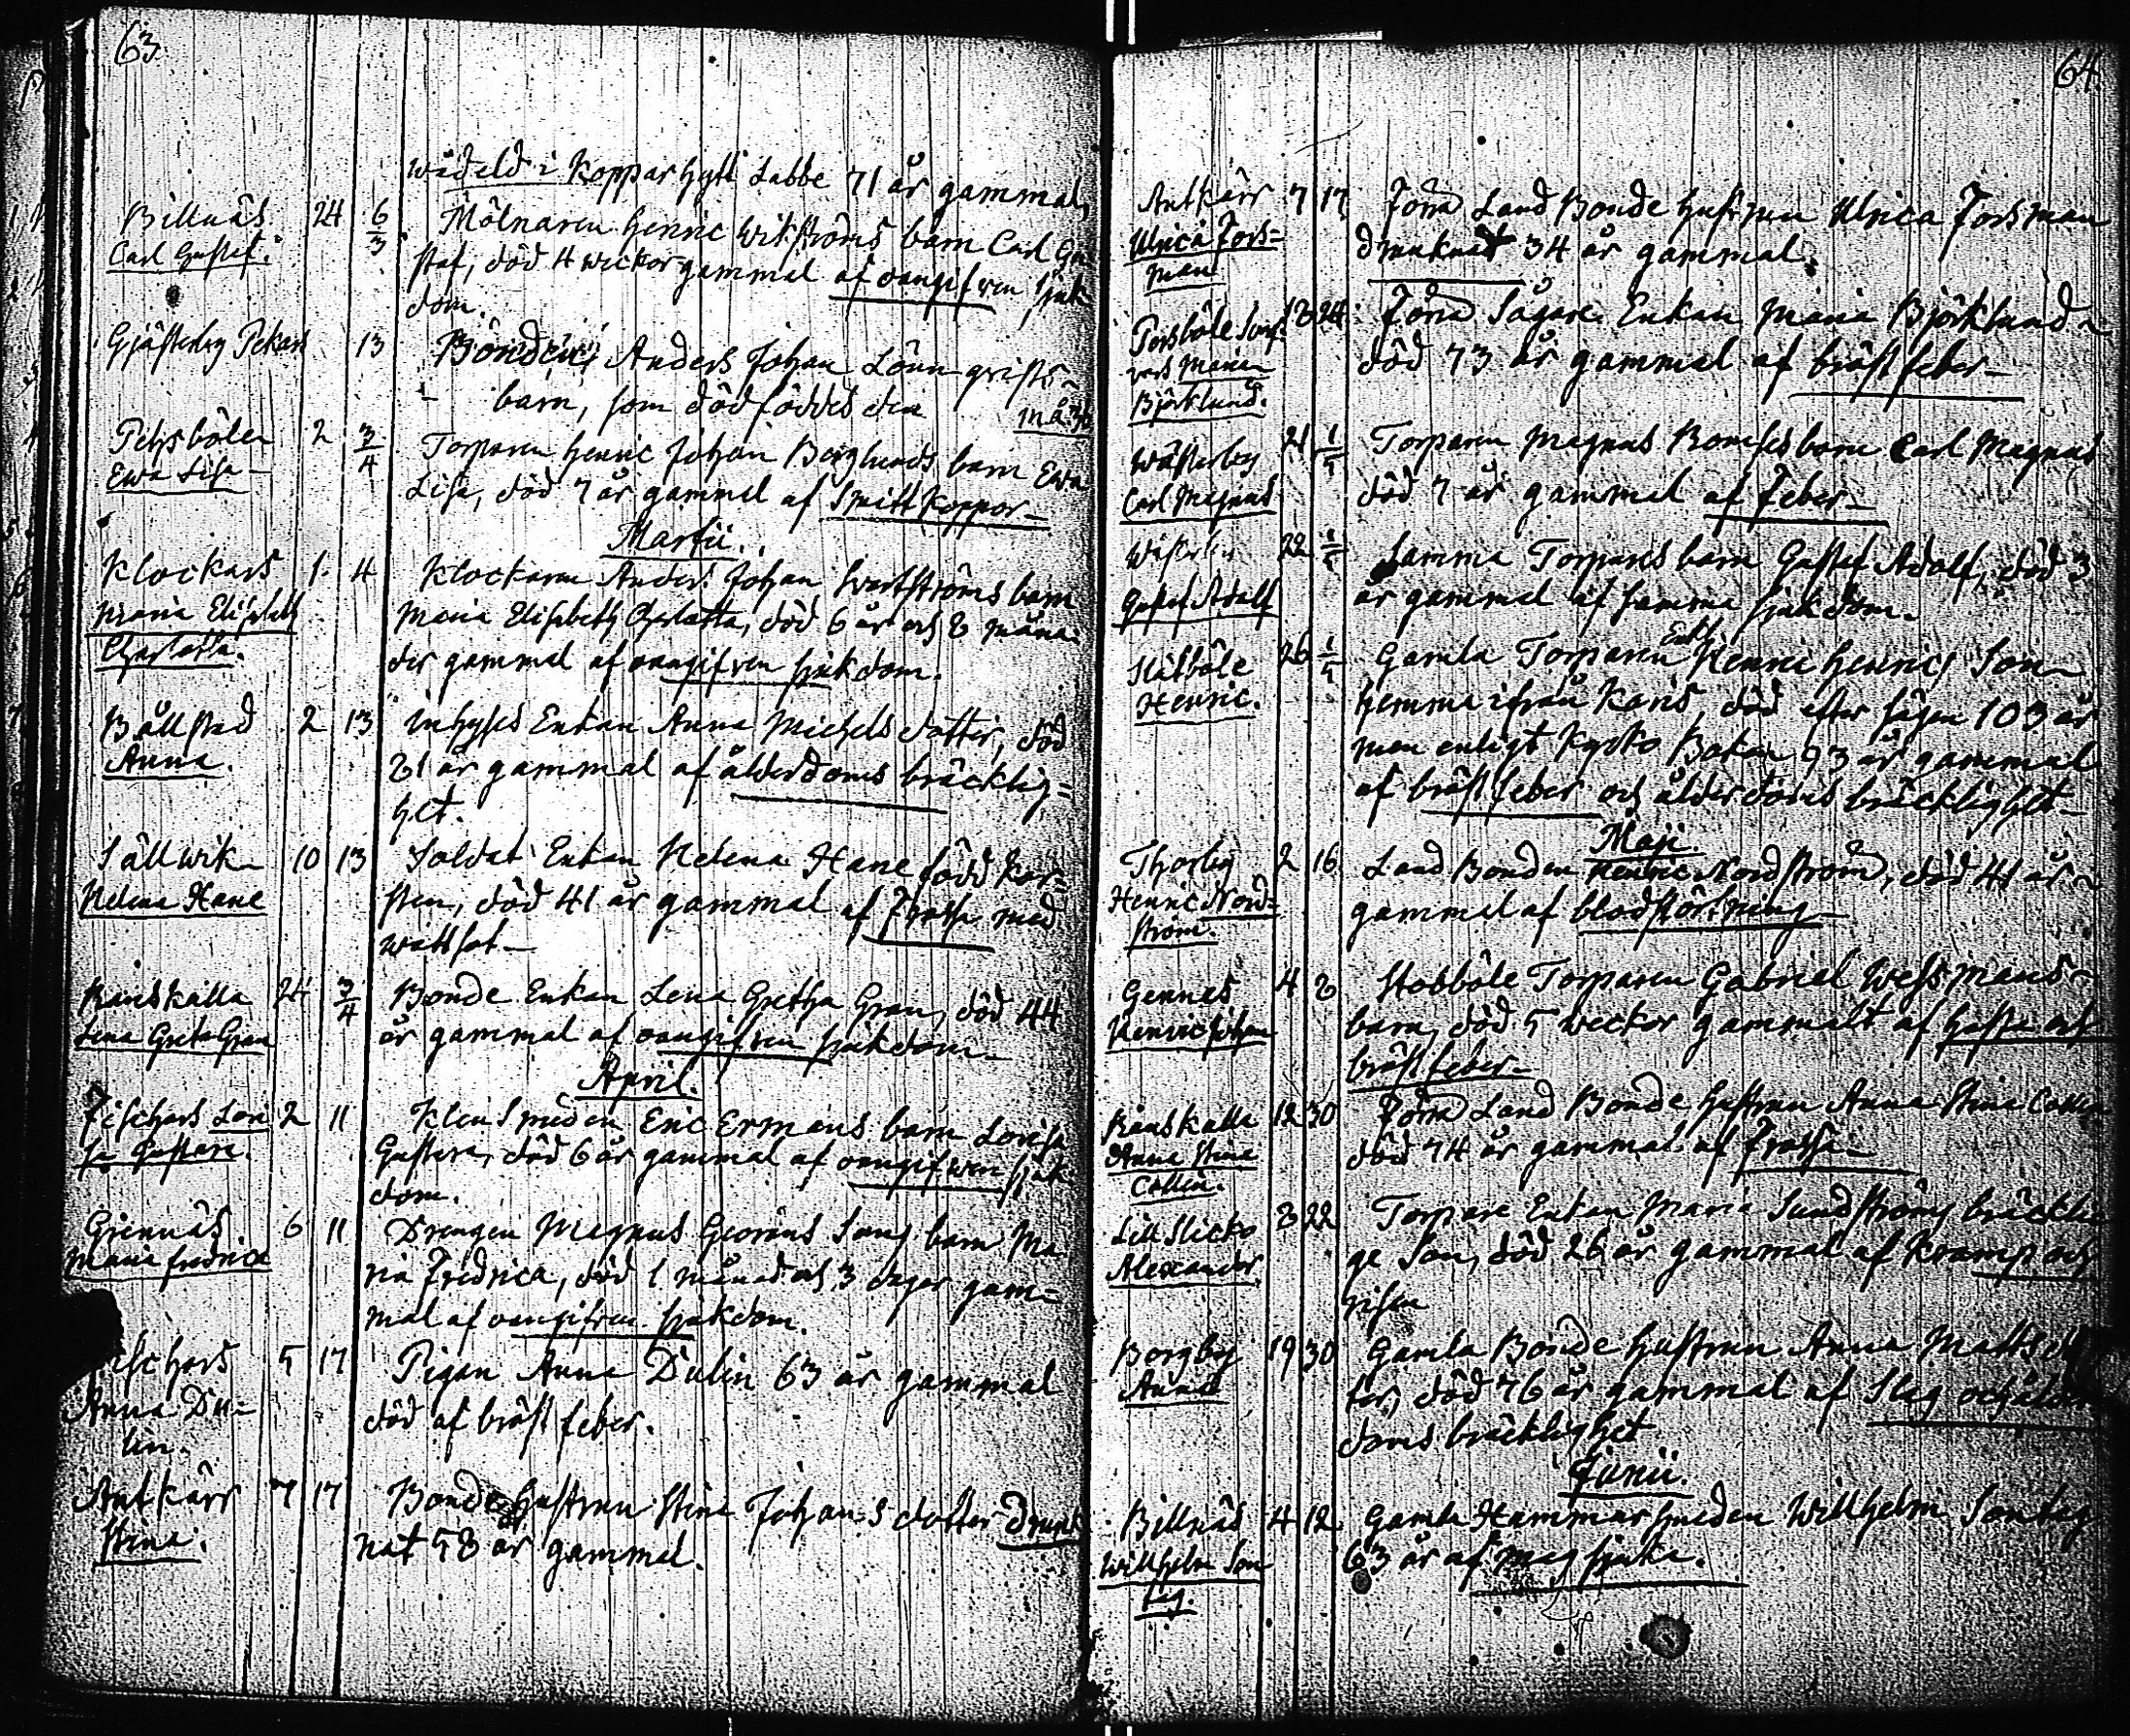 63.
wådeld i Kopparhytt Labbe 71 år gammal,
Billnäs 24 6/3 Mölnaren Henric Wikströms barn Carl Gu
Carl Gustef. staf, död 4 weckor gammal af oangifven sjuk
dom.
Gjästerby Pekars 13 Bonden Anders Johan Lönn
barn, som död föddes den
Pehrsböle 2 3/4 Torparen Henric Johan Berglunds barn Ewa
Ewa Lisa Lisa, död 7 år gammal af Smitt koppor
Martii.
Klockars 1. 4 Klockaren Anders Johan barn
Maria Elisabeth Maria Elisabeth Charlotta, död 6 år och 8 måna
Charlotta. der gammal af oangifven sjukdom.
Bållstad 2 13 Inhyses Enkan Anna Michels dotter, död
Anna. 81 år gammal af ålderdoms bräcklig=
het.
Sällwik 10 13 Soldat Enkan Helena Hane född Kar=
Helena Hane sten, död 41 år gammal af Frossa med
wattsot
Ranskalla 24 3/4 Bonde Enkan Lena Gretha Gran, död 44
Lena Greta Gran år gammal af oangifven sjukdom
April.
Fischars Lovi 2 11 Klensmeden Eric Ermans barn Lovisa
sa Gustava. Gustava, död 6 år gammal af oangifwen sjuk
dom.
Grennäs 6 11 Drengen Magnus Georäns barn Ma
Maria Fredrica ria Fredrica, död 1 månad och 3 dagar gam=
mal af oangifven sjukdom.
ischars 5 17 Pigan Anna Dulin 63 år gammal
Anna Du= död af bröst feber.
lin.
Antkärr 7 17 Bonde Hustrun Stina Johans dotter Drunk
Stina. nat 58 år gammal.
64.
Antkärr 7 17 Förra Land Bonde Hustrun Ulrica Forsman
Ulrica Fors= drunknat 34 år gammal.
man
Persböle 13 24 Förra Sågare Enkan Maria Björklund
Maria död 73 år gammal af bröst feber
Björklund.
Wästerby 21 1/5 Torparen Magnus barn Carl Magnus
Carl Magnus död 7 år gammal af Feber
Wästerby 22 1/5 Samma Torpares barn Gustaf Adolf, död 3
Gustaf Adolf år gammal af samma sjukdom.
Slätböle 26 1/5 Gamla Torparen Henric Henrics Son
Henric. hemma ifrån Karis, död efter sägen 103 år
men enligt Kyrko Boken 93 år gammal
af bröst feber och ålderdoms bräcklighet
Maji.
Thorby 2 16 Land Bonden Henric Nordström, död 41 år
Henric Nord= gammal af blodstörtning
ström.
Gennes 4 8 Stobböle Torparen Gabriel Wessmans
Henric Johan barn, död 5 weckor gammalt af hosta och
bröst feber
Ranskalla 12 30 Förra Land Bonde Hustrun Anna Stina Collin
Anna Stina död 74 år gammal af Frossa
Collin.
Lill Slicko 8 22 Torpare Enkan Maria Sundströms bräckli
Alexander ge Son, död 26 år gammal af Kramp och
Borgby 19 30 Gamla Bonde Hustrun Anna Matts dot
Anna ter, död 76 år gammal af Slag och ålder
doms bräcklighet
Junii.
Billnäs 4 12 Gamla Hammarsmeden Willhelm Sontag
Willhelm Son 63 år af mag sjuka.
tag.